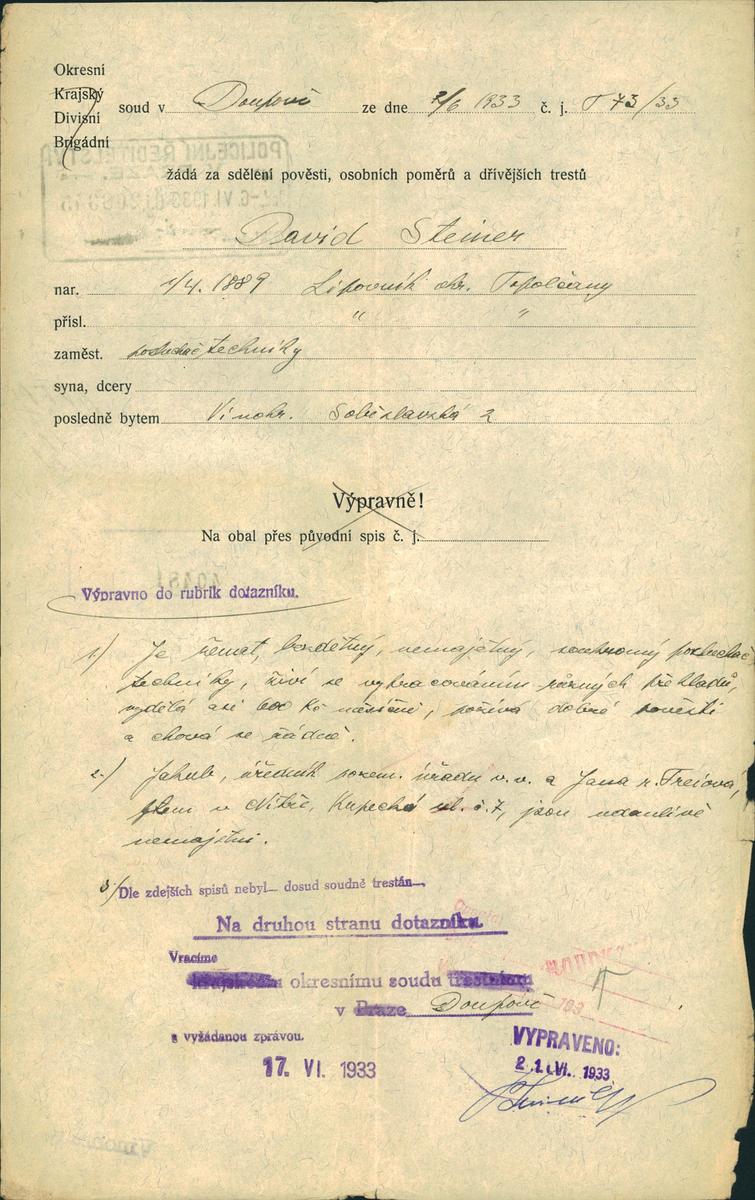 Okresní
Krajský
Divisní
Brigádní
soud v Doupově ze dne 2/6 1933 č. j. T 73/33
žádá za sdělení pověsti, osobních poměrů a dřívějších trestů
David Steiner
nar. 1/4. 1889 Lipovník okr. Topolčany
přísl. " "
zaměst. posluchač techniky
syna, dcery
posledně bytem Vinohr. Soběslavská 2
Výpravně!
Na obal přes původní spis č. j.
Výpravno do rubrik dotazníku.
1./ Je ženat, bezdětný, nemajetný, soukromý posluchač
techniky, živí se vypracováním různých překladů,
vydělá asi 600 Kč měsíčně, požívá dobré pověsti
a chová se řádně.
2./ Jakub, úředník pozem. úřadu v. v. a Jana r. Freiova,
bytem v Nitře, Kupecká ul. č. 7, jsou údanlivě
nemajetni.
3./ Dle zdejších spisů nebyl dosud soudně trestán
Na druhou stranu dotazníku.
Vracíme
krajskému okresnímu soudu trestnímu
v Praze Doupově
s vyžádanou zprávou.
17. VI. 1933
VYPRAVENO:
21. VI. 1933